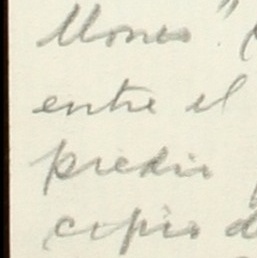 Mones". (
entre el
predio
copio d